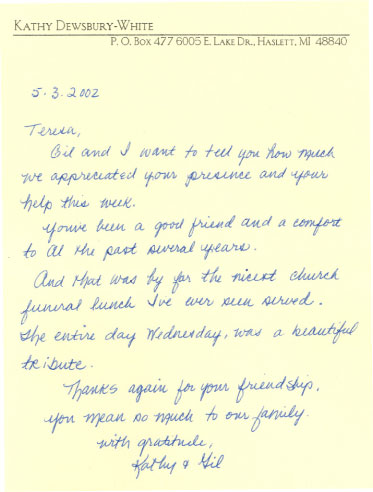 KATHY DEWSBURY-WHITE
P. O. BOX 477 6005 E. LAKE DR., HASLETT, MI 48840
5.3.2002
Teresa,
Gil and I want to tell you how much
we appreciated your presence and your
help this week.
You've been a good friend and a comfort
to Al the past several years.
And that was by far the nicest church
funeral lunch I've ever seen served.
The entire day Wednesday, was a beautiful
tribute.
Thanks again for your friendship,
you mean so much to our family.
with gratitude,
Kathy & Gil